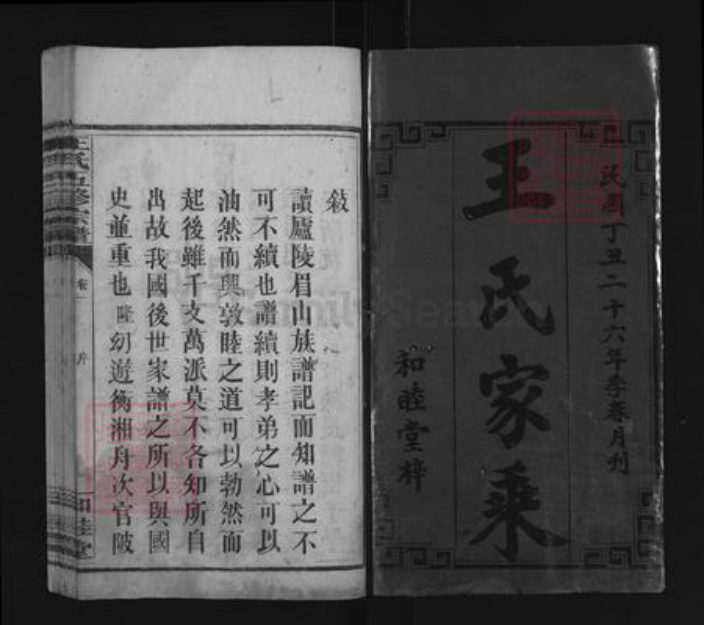 民國丁丑二十六年季春月刊
王氏家乘
和睦堂梓
敍
讀廬陵眉山族譜記而知譜之不
可不續也譜續則孝弟之心可以
油然而興敦睦之道可以勃然而
起後雖千支萬派莫不各知所自
出故我國後世家譜之所以與國
史並重也隆幼遊衡湘舟次官陂
王氏五修宗譜
卷一
和睦堂